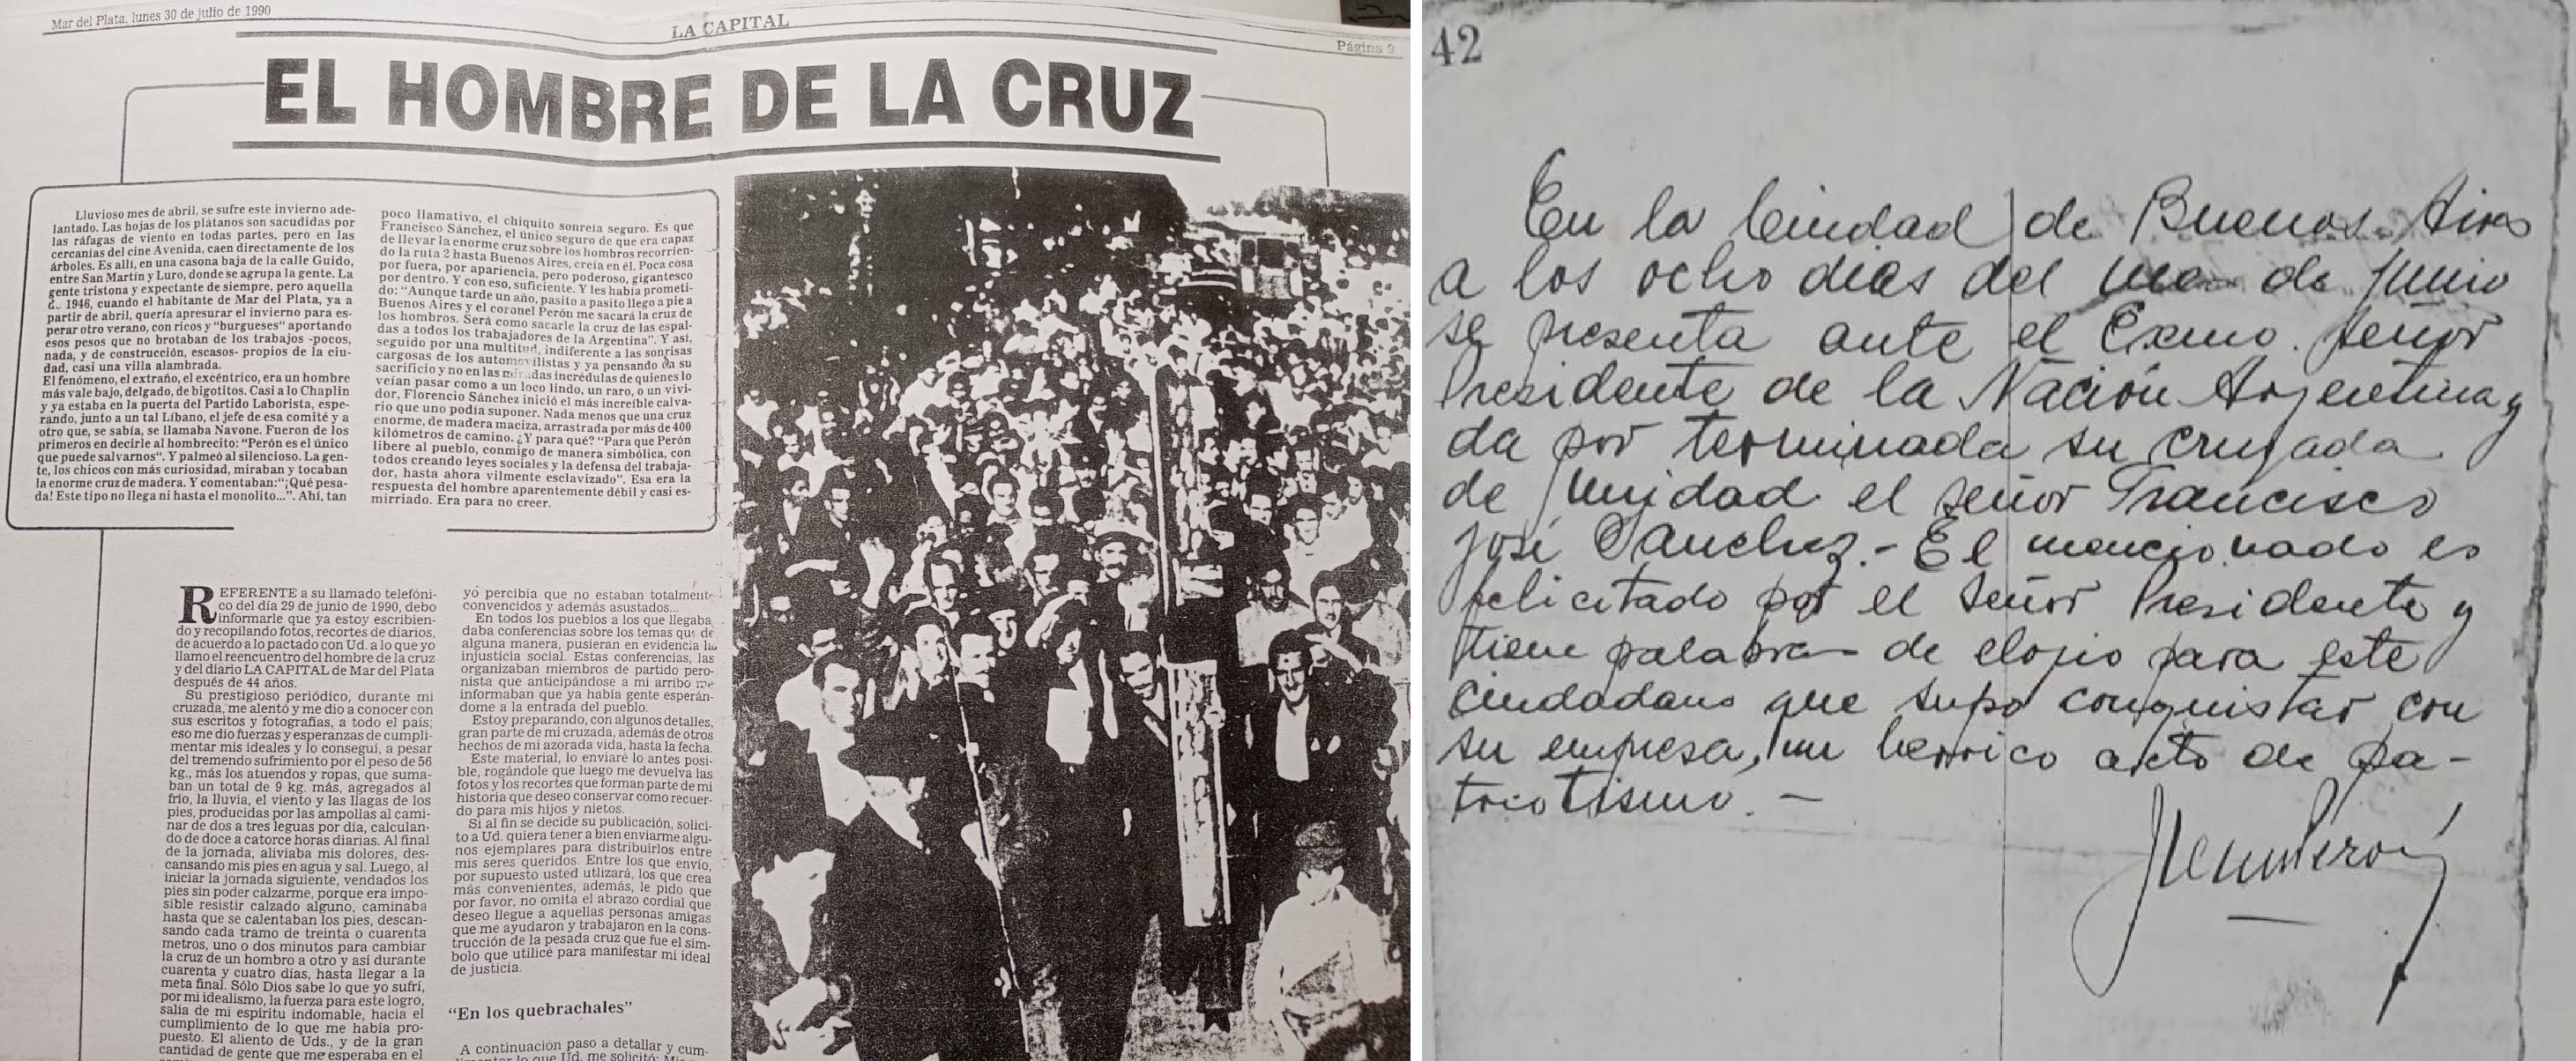 Mar del Plata, lunes 30 de julio de 1990
LA CAPITAL
Página 9
EL HOMBRE DE LA CRUZ
Lluvioso mes de abril, se sufre este invierno ade-
lantado. Las hojas de los plátanos son sacudidas por
las ráfagas de viento en todas partes, pero en las
cercanías del cine Avenida, caen directamente de los
árboles. Es allí, en una casona baja de la calle Guido,
entre San Martín y Luro, donde se agrupa la gente. La
gente tristona y expectante de siempre, pero aquella
1946, cuando el habitante de Mar del Plata, ya a
partir de abril, quería apresurar el invierno para es-
perar otro verano, con ricos y "burgueses" aportando
esos pesos que no brotaban de los trabajos -pocos,
nada, y de construcción, escasos- propios de la ciu-
dad, casi una villa alambrada.
El fenómeno, el extraño, el excéntrico, era un hombre
más vale bajo, delgado, de bigotitos. Casi a lo Chaplin
y ya estaba en la puerta del Partido Laborista, espe-
rando, junto a un tal Líbano, el jefe de esa comité y a
otro que, se sabía, se llamaba Navone. Fueron de los
primeros en decirle al hombrecito: "Perón es el único
que puede salvarnos". Y palmeó al silencioso. La gen-
te, los chicos con más curiosidad, miraban y tocaban
la enorme cruz de madera. Y comentaban:"¡Qué pesa-
da! Este tipo no llega ni hasta el monolito...". Ahí, tan
poco llamativo, el chiquito sonreía seguro. Es que
Francisco Sánchez, el único seguro de que era capaz
de llevar la enorme cruz sobre los hombros recorrien-
do la ruta 2 hasta Buenos Aires, creía en él. Poca cosa
por fuera, por apariencia, pero poderoso, gigantesco
por dentro. Y con eso, suficiente. Y les había prometi-
do: "Aunque tarde un año, pasito a pasito llego a pie a
Buenos Aires y el coronel Perón me sacará la cruz de
los hombros. Será como sacarle la cruz de las espal-
das a todos los trabajadores de la Argentina". Y así,
seguido por una multitud, indiferente a las sonrisas
cargosas de los automovilistas y ya pensando en su
sacrificio y no en las miradas incrédulas de quienes lo
veían pasar como a un loco lindo, un raro, o un vivi-
dor, Florencio Sánchez inició el más increíble calva-
rio que uno podía suponer. Nada menos que una cruz
enorme, de madera maciza, arrastrada por más de 400
kilómetros de camino. ¿Y para qué? "Para que Perón
libere al pueblo, conmigo de manera simbólica, con
todos creando leyes sociales y la defensa del trabaja-
dor, hasta ahora vilmente esclavizado". Esa era la
respuesta del hombre aparentemente débil y casi es-
mirriado. Era para no creer.
REFERENTE a su llamado telefóni-
co del día 29 de junio de 1990, debo
informarle que ya estoy escribien-
do y recopilando fotos, recortes de diarios,
de acuerdo a lo pactado con Ud. a lo que yo
llamo el reencuentro del hombre de la cruz
y del diario LA CAPITAL de Mar del Plata
después de 44 años.
Su prestigioso periódico, durante mi
cruzada, me alentó y me dio a conocer con
sus escritos y fotografías, a todo el país;
eso me dio fuerzas y esperanzas de cumpli-
mentar mis ideales y lo conseguí, a pesar
del tremendo sufrimiento por el peso de 56
kg., más los atuendos y ropas, que suma-
ban un total de 9 kg. más, agregados al
frío, la lluvia, el viento y las llagas de los
pies, producidas por las ampollas al cami-
nar de dos a tres leguas por día, calculan-
do de doce a catorce horas diarias. Al final
de la jornada, aliviaba mis dolores, des-
cansando mis pies en agua y sal. Luego, al
iniciar la jornada siguiente, vendados los
pies sin poder calzarme, porque era impo-
sible resistir calzado alguno, caminaba
hasta que se calentaban los pies, descan-
sando cada tramo de treinta o cuarenta
metros, uno o dos minutos para cambiar
la cruz de un hombro a otro y así durante
cuarenta y cuatro días, hasta llegar a la
meta final. Sólo Dios sabe lo que yo sufrí,
por mi idealismo, la fuerza para este logro,
salía de mi espíritu indomable, hacia el
cumplimiento de lo que me había pro-
puesto. El aliento de Uds., y de la gran
cantidad de gente que me esperaba en el
yo percibía que no estaban totalmente
convencidos y además asustados...
En todos los pueblos a los que llegaba
daba conferencias sobre los temas que de
alguna manera, pusieran en evidencia la
injusticia social. Estas conferencias, las
organizaban miembros de partido pero-
nista que anticipándose a mi arribo me
informaban que ya había gente esperán-
dome a la entrada del pueblo.
Estoy preparando, con algunos detalles,
gran parte de mi cruzada, además de otros
hechos de mi azorada vida, hasta la fecha.
Este material, lo enviaré lo antes posi-
ble, rogándole que luego me devuelva las
fotos y los recortes que forman parte de mi
historia que deseo conservar como recuer-
do para mis hijos y nietos.
Si al fin se decide su publicación, solici-
to a Ud. quiera tener a bien enviarme algu-
nos ejemplares para distribuirlos entre
mis seres queridos. Entre los que envío,
por supuesto usted utlizará, los que crea
más convenientes, además, le pido que
por favor, no omita el abrazo cordial que
deseo llegue a aquellas personas amigas
que me ayudaron y trabajaron en la cons-
trucción de la pesada cruz que fue el sím-
bolo que utilicé para manifestar mi ideal
de justicia.
"En los quebrachales"
A continuación paso a detallar y cum-
lo que Ud. me solicitó:
42
En la Ciudad de Buenos Aires
a los ocho días del mes de Junio
se presenta ante el Exmo. Señor
Presidente de la Nación Argentina y
da por terminada su cruzada
de Unidad el señor Francisco
José Sanchez.- El mencionado es
felicitado por el Señor Presidente y
tiene palabras de elogio para este
Ciudadano que supo conquistar con
su empresa, un heroico acto de pa-
triotismo. -
Juan Perón